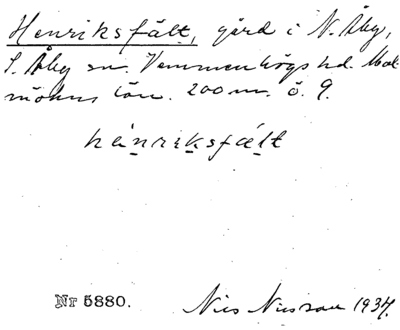 Henriksfält, gård i N. Åby,
S. Åby sn. Vemmenhögs hd. Mal-
möhus län. 200 m. ö. 9.
hänriksfält
Nr 5880. Nils Nilsson 1934.